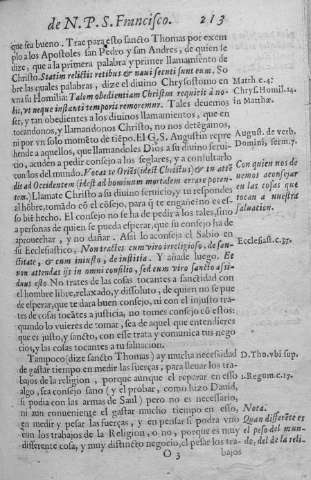 de N. P. S. Francisco. 213
que sea bueno. Trae para esto sancto Thomas por exem
plo a los Apostoles san Pedro y san Andres, de quien se
dize, que a la primera palabra y primer llamamiento de
Christo. Statim relictis retibus &
Math c.4:
bre las quales palabras, dize el divino Chrysostomo en
Chrys. Homil. 14.
xa su Homilia: Talem obedientiam Christus requirit à no-
in Matthæ.
bis, vt neque instanti temporis remoremur. Tales deuemos
ser, y tan obedientes a los diuinos llamamientos, que en
tocandonos, y llamandonos Christo, no nos detegamos,
ni por vn solo momēto de tiēpo. El G. S. Augustin repre
August. de verb.
hende a aquellos, que llamandoles Dios a su diuino serui-
Domini, serm.7.
cio, acuden a pedir consejo a los seglares, y a consultarlo
con los del mundo.
Con quien nos de
uemos aconsejar
die ad Occidentem (idest ad hominem mortalem
en las cosas que
Llamate Christo a su diuino seruicio, y tu respondes
tocan a nuestra
al hōbre, tomādo cō el cōsejo, para q te engañe
saluacion.
so bié hecho. El consejo no se ha de pedir a los tales, sino
a personas de quien se pueda esperar, que tu consejo ha de
aprouechar, y no dañar. Assi lo aconseja el Sabio en
su Ecclesiastico, Non tractes cum viro irreligioso, de san-
Ecclesiast. c.37.
ctitate, & cum iniusto, de iustitia. Y añade luego. Et
non attendas ijs in omni consilio, sed cum viro sancto assi-
duus esto No trates de las cosas tocantes a sanctidad con
el hombre libre, relaxado, y dissoluto, de quien no se pue
de esperar, que te dara buen consejo, ni con el injusto tra
tes de cosas tocātes a justicia, no tomes consejo cō estos:
quando lo vuieres de tomar, sea de aquel que entendieres
que es justo, y sancto, con esse trata y comunica tus nego
cios, y las cosas tocantes a tu saluacion.
Tampoco (dize sancto Thomas) ay mucha necesidad
D. Tho. vbi sup.
de gastar tiempo en medir las fuerças, para lleuar los tra-
bajos de la religion, porque aunque el reparar en esso
1. Regum. c.17.
algo, sea consejo sano (y el probar, como hizo David,
si podia con las armas de Saul) pero no es necessario,
ni aun conueniente el gastar mucho tiempo en esso,
Nota.
en medir y pesar las fuerças, y en pensar si podra
Quan differēte es
con los trabajos de la Religion, o no, porque es muy
el peso del mun-
differente cosa, y muy distincto negocio, el pesar los tra-
de, del de la reli-
O 3 bajos